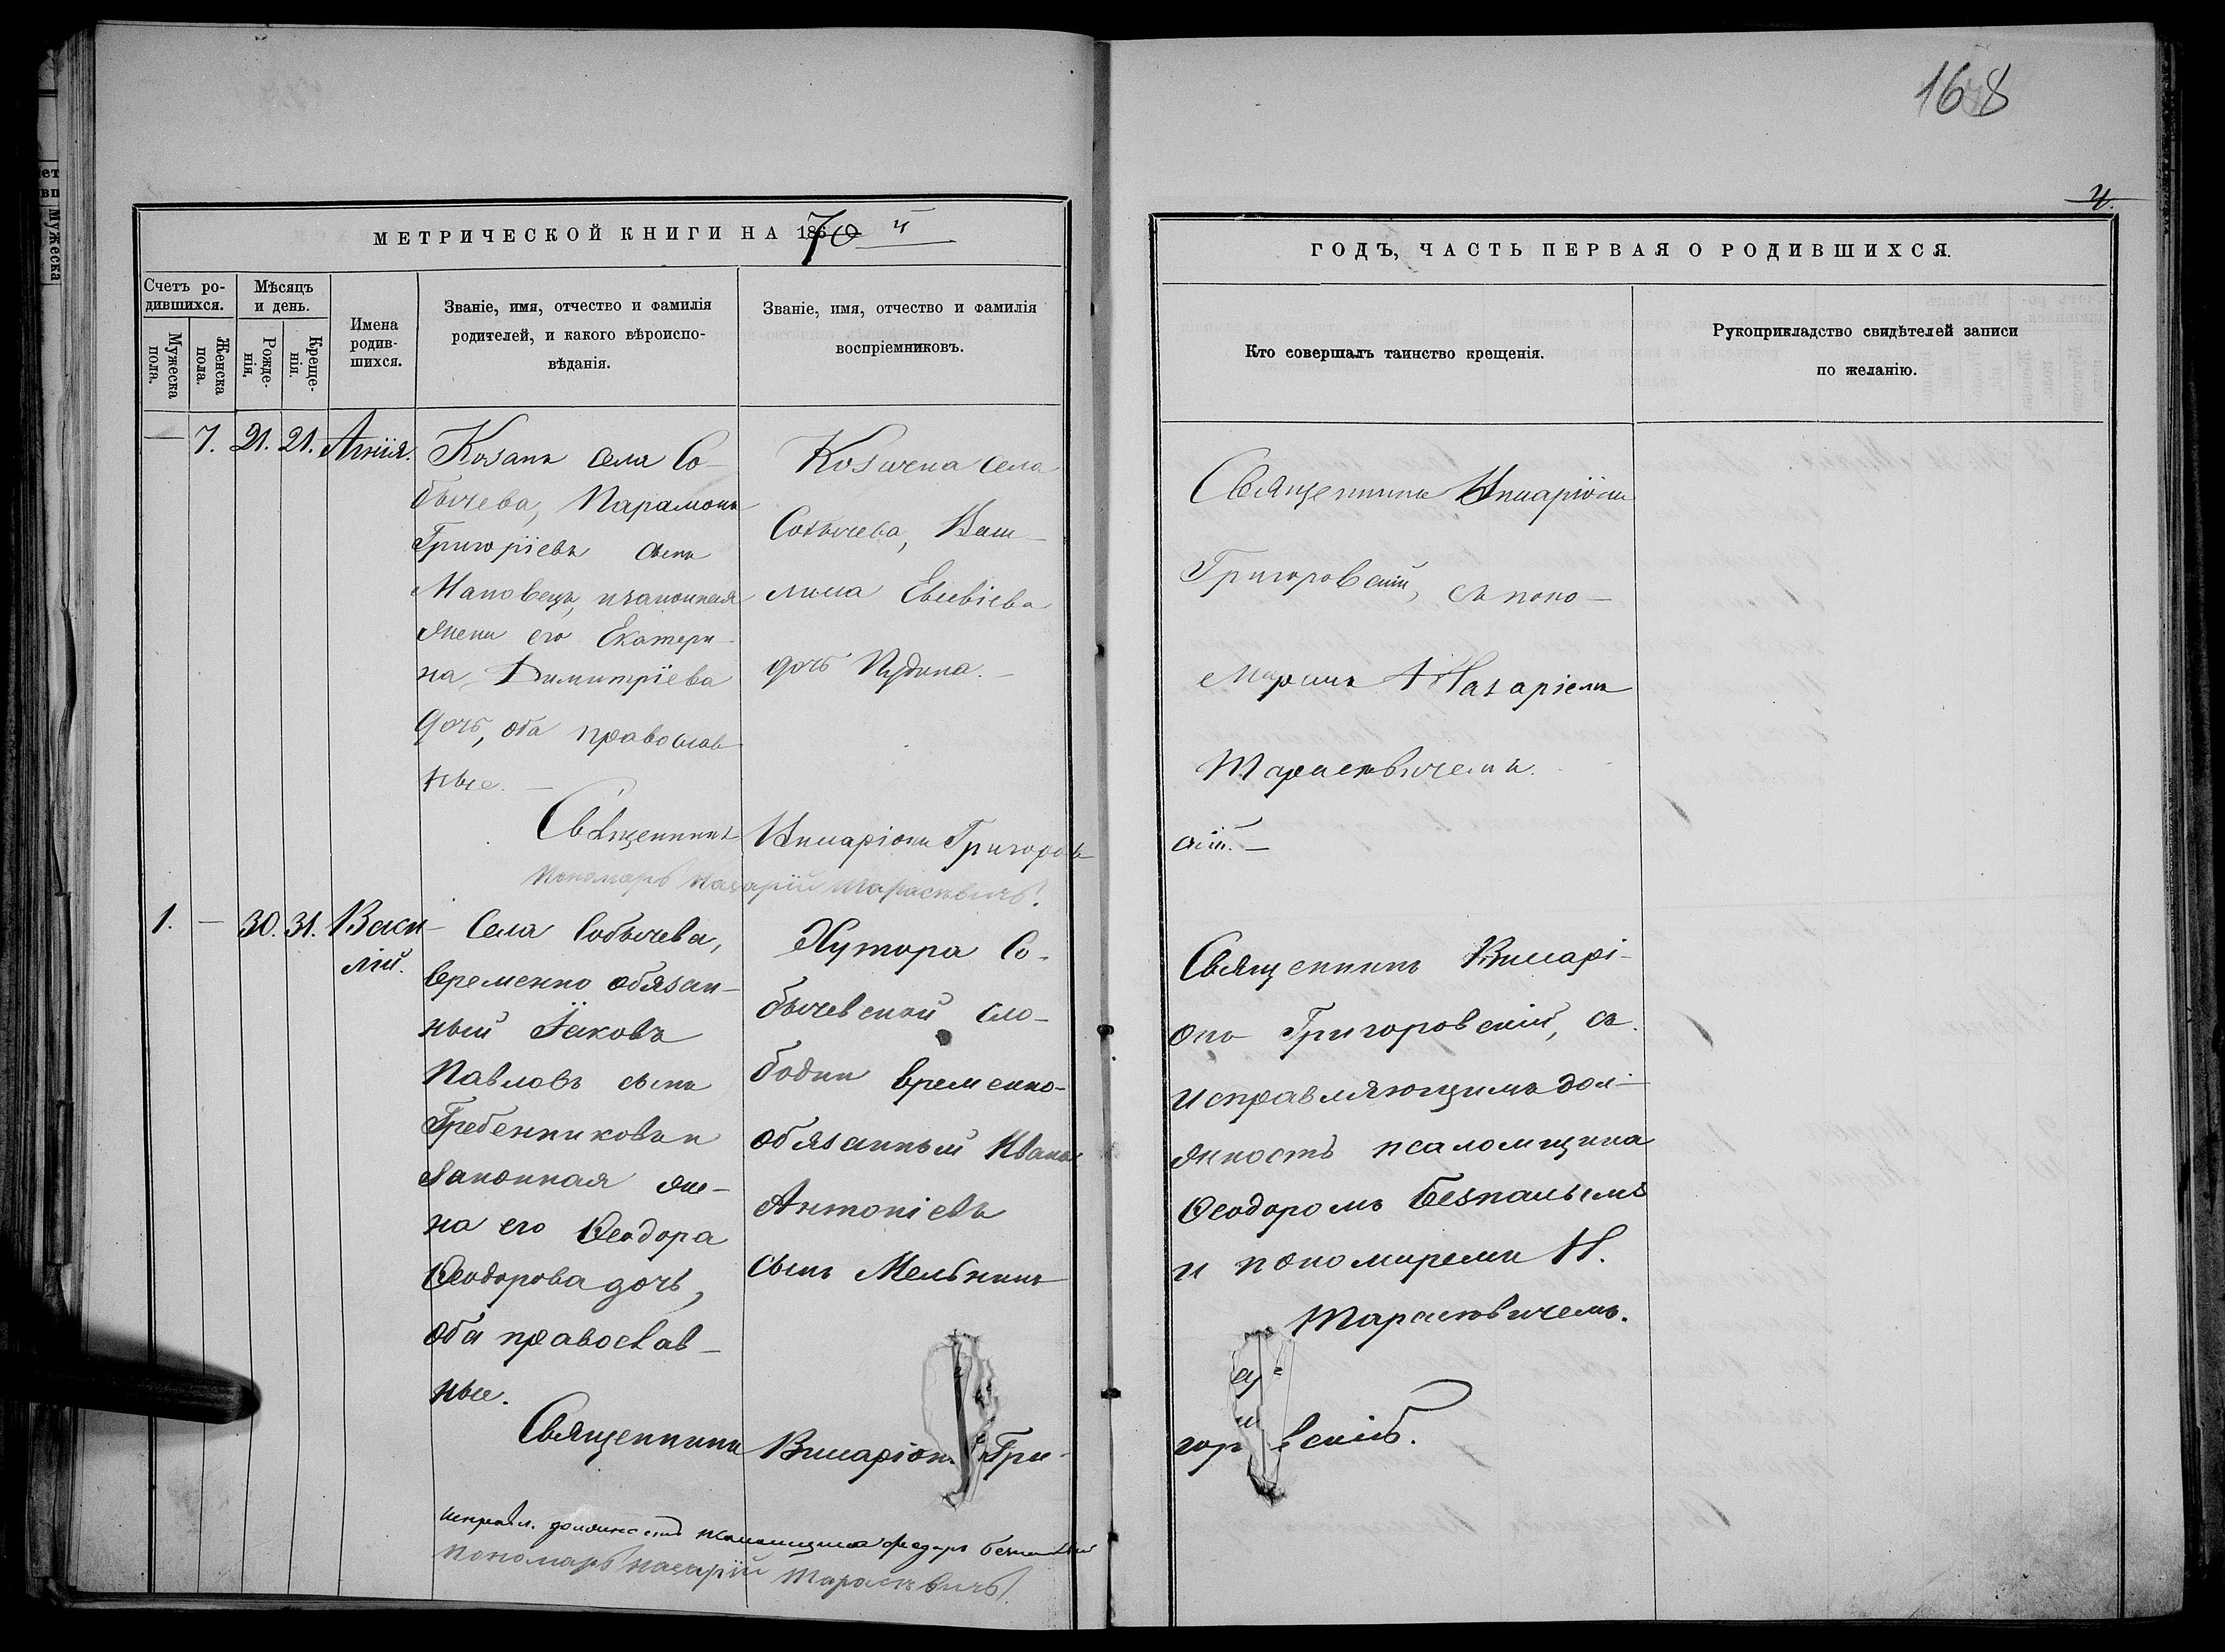 168
4.
МЕТРИЧЕСКОЙ КНИГИ НА 1870 й
ГОДЪ, ЧАСТЬ ПЕРВАЯ О РОДИВШИХСЯ.
Счетъ ро-
дившихся.
Мужеска
пола.
Женска
пола.
Мѣсяцъ
и день.
Рожде-
нія.
Креще-
нія.
Имена
родив-
шихся.
Званіе, имя, отчество и фамилія
родителей, и какого вѣроиспо-
вѣданія.
Званіе, имя, отчество и фамилія
воспріемниковъ.
Кто совершалъ таинство крещенія.
Рукоприкладство свидѣтелей записи
по желанію.
— 7. 21. 21.
Козакъ села Со-
бычева, Парамонъ
Григоріевъ сынъ
Маковецъ, изаконная
жена его Екатери-
на Димитріева
дочь, оба православ
ные. —
Козачка села
Собычева, Васи-
лиса
дочь
Священникъ Иларіонъ
Григоровскій, съ поно-
маремъ Назаріемъ
Тарасевичемъ.
Священникъ Иларіонъ Григоров-
скій. —
Пономарь Назарій Тарасевичъ.
1. — 30. 31. Васи-
лій.
Села Собычева,
временно обязан-
ный Іаковъ
Павловъ сынъ
Гребенниковъ и
законная же-
на его Ѳеодора
Ѳеодорова дочь,
оба православ-
ные.
Хутора Со-
бычевской Сло-
бодки временно-
обязанный Иванъ
Антоніевъ
сынъ Мельникъ
Священникъ Иларі-
онъ Григоровскій, съ
исправляющимъ дол-
жность псаломщика
Ѳеодоромъ Безпалымъ
и пономаремъ Н.
Тарасевичемъ.
Священникъ Иларіонъ Гри-
горовскій.
исправл. должность псаломщика Федоръ Безпалый
Пономарь Назарій Тарасевичъ.